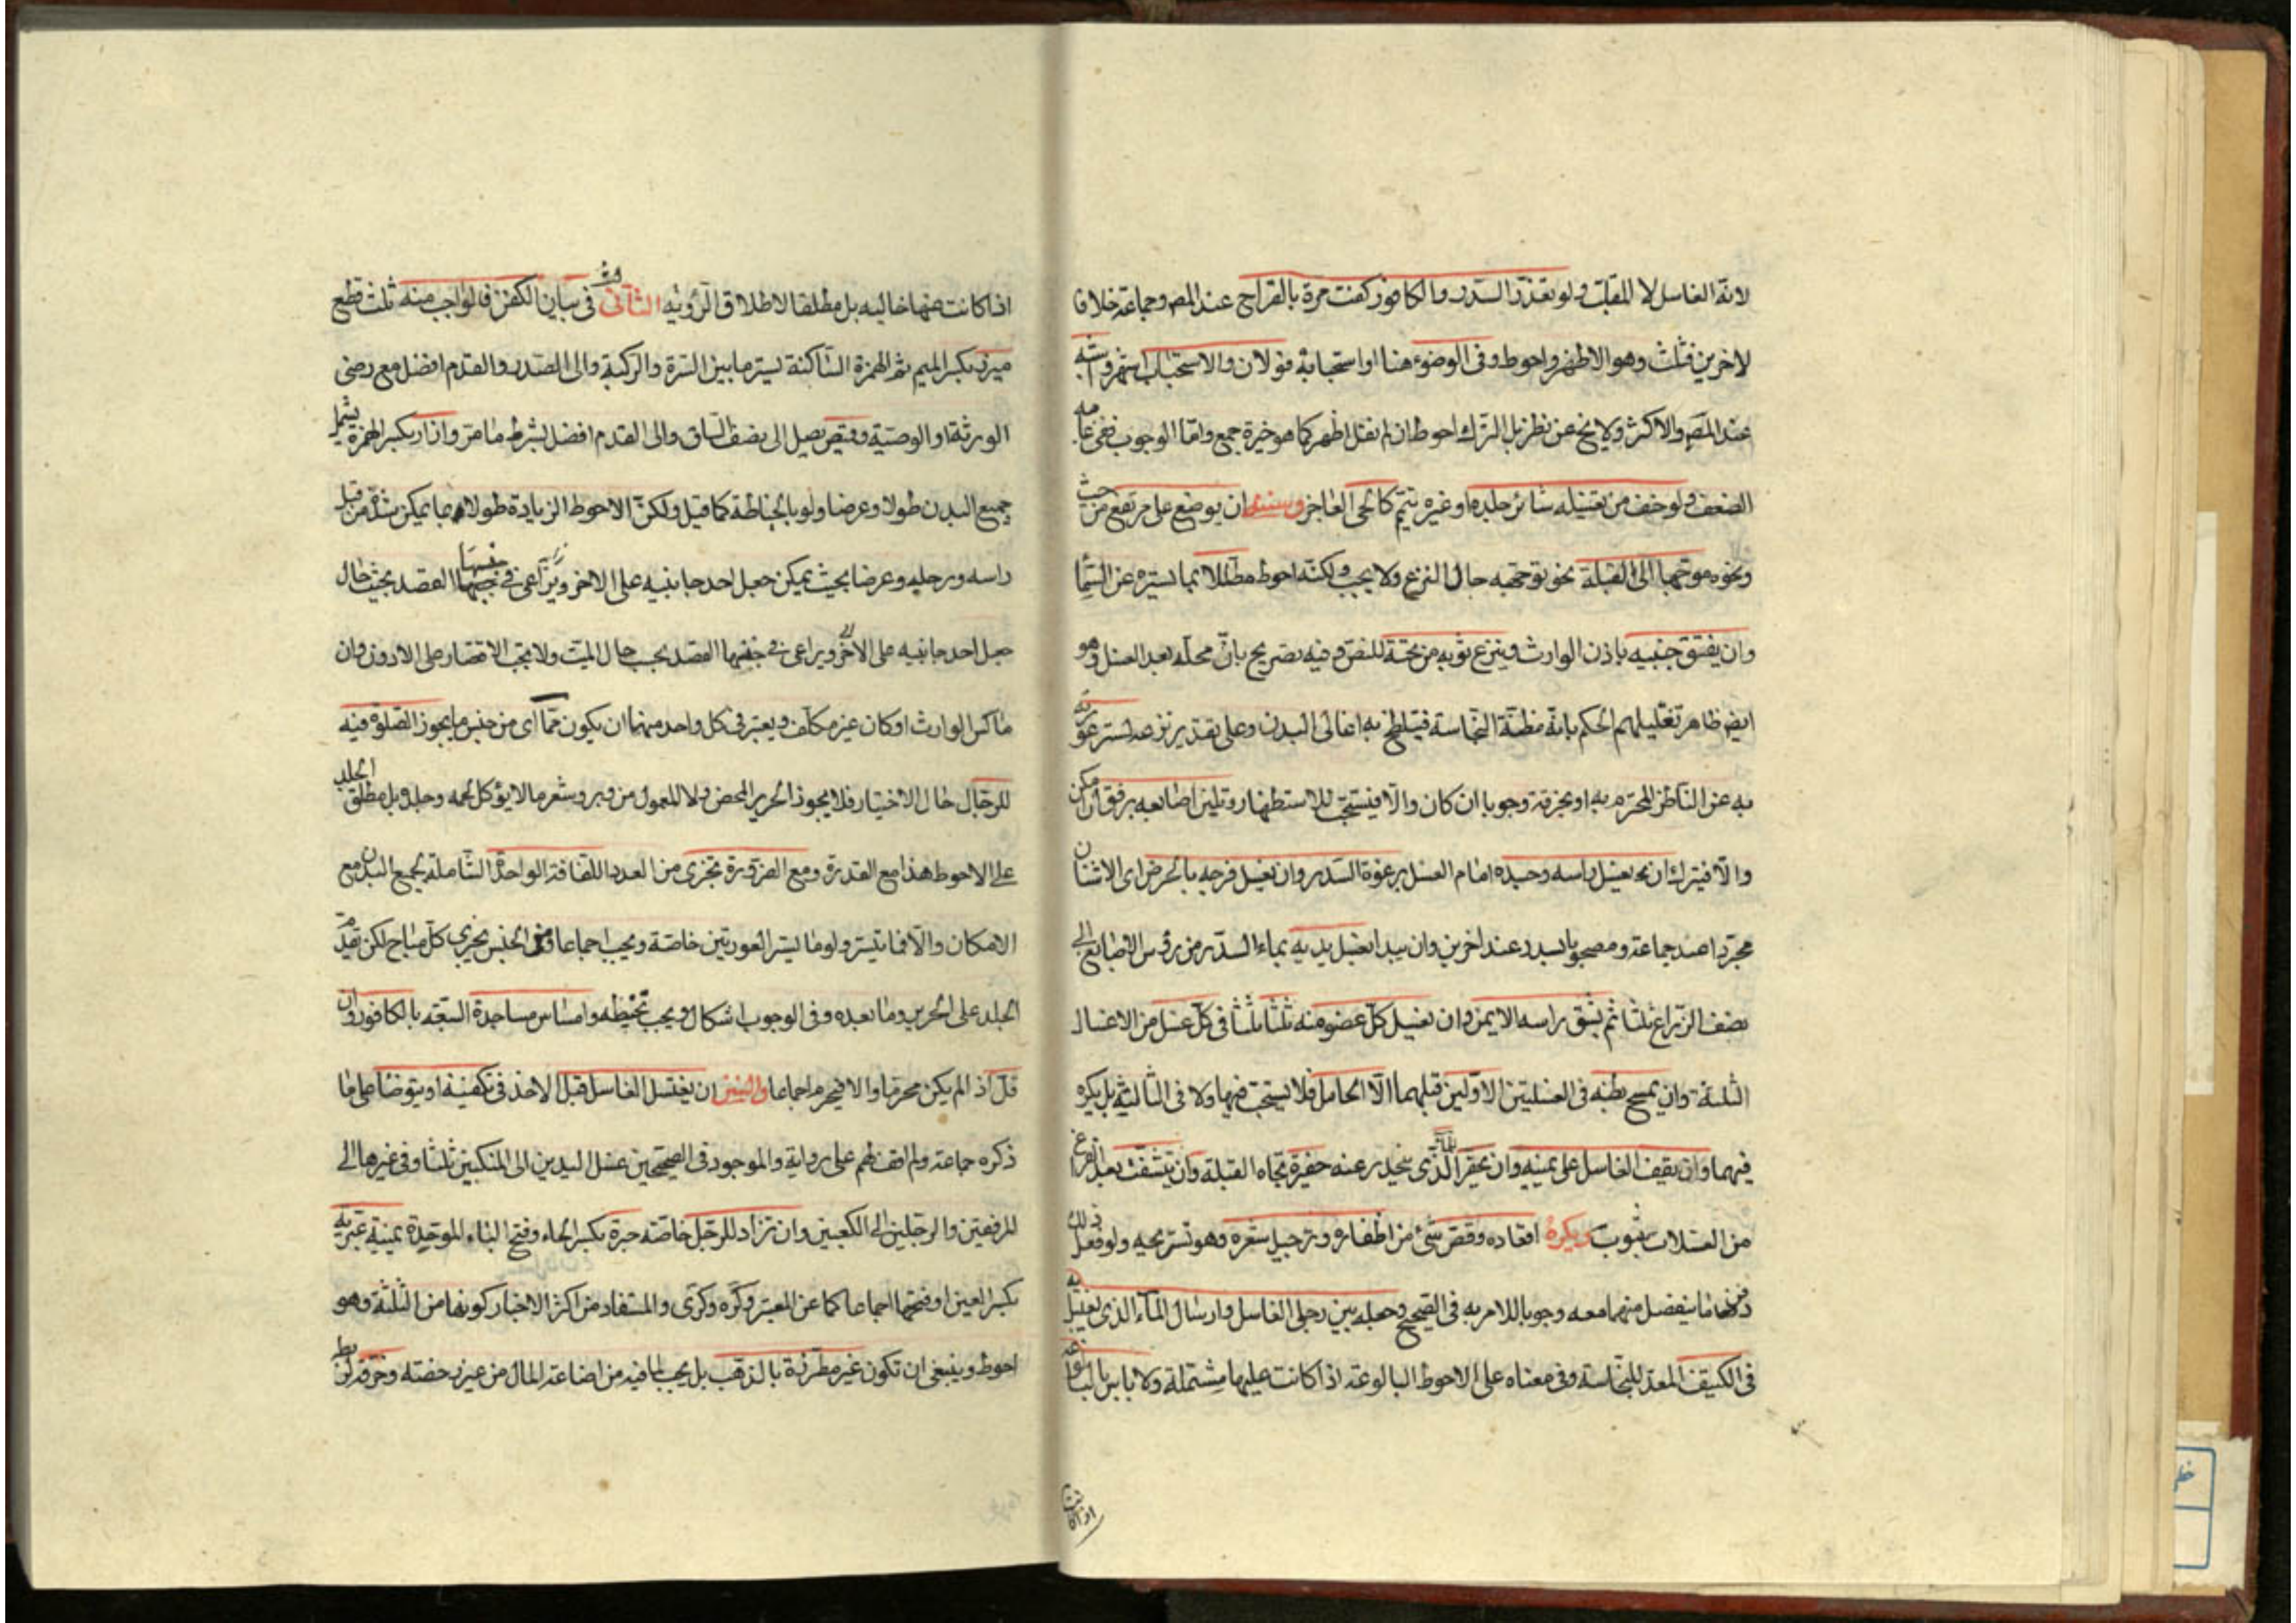 لانه الغاسل لا المقلب ولو تعذر السدر والكافور كفت مرة بالقراح عند المص وجماعة خلافا
لاخرين فثلث وهو الاظهر واحوط وفى الوضوء هنا او استحبابه قولان والاستحباب اشهر واشبه
عند المص والاكثر ولا يخ عن نظر بل الترك احوط ان لم نقل اظهر كما هو خيرة جمع واما الوجوب ففى غاية
الضعف ولو خف من تغسيله تناثر جلده او غيره يتيم كالحى العاجز وسننه ان يوضع على مرتفع من خشب
ونحوه موجها الى القبلة نحو توجهه حال النزع ولا يجب ولكنه احوط مظللا بما يستره عن السما
وان يفتق جيبه باذن الوارث وينزع ثوبه من تحته للنص وفيه تصريح بان محله بعد الغسل وهو
ايض ظاهر تعليلهم الحكم بانه مظنة النجاسة فيتلطخ به اعالى البدن وعلى تقدير نزعه تستر عورته
به عن الناظر المحترم به او بخرقة وجوبا ان كان والا فيستحب للاستظهار وتليين اصابعه برفق ان امكن
والا فيترك ان يغسل راسه وجسده امام الغسل برغوة السدر وان يغسل فرجه بالحرض اى الاشنان
مجردا عند جماعة ومصحوبا بسدر عند اخرين وان يبدا بغسل يديه بماء السدر من روس الاصابع الى
نصف الذراع ثلثا ثم بشق راسه الايمن وان يغسل كل عضو منه ثلثا ثلثا فى كل غسل من الاغسال
الثلثة وان يمسح بطنه فى الغسلتين الاولتين قبلهما الا الحامل فلا يستحب فيها ولا فى الثالثة بل يكره
فيهما وان يقف الغاسل على يمينه وان يحفر للماء الذى ينحدر عنه حفيرة تجاه القبلة وان ينشف بعد الفراغ
من الغسلات بثوب ويكره اقعاده وقص شىء من اظفاره وترجيل شعره وهو تسريحه ولو فعل ذلك
دفن ما ينفصل منهما معه وجوبا للامر به فى الصحيح وجعله بين رجلى الغاسل وارسال الماء الذى يغتسل به
فى الكنيف المعد للنجاسة وفى معناه على الاحوط البالوعة اذا كانت عليها مشتملة ولا باس بالبالوعة
اذا كانت
اذا كانت عنها خاليه بل مطلقا لاطلاق الرؤيه الثانى فى بيان الكفن فالواجب منه ثلث قطع
ميزر بكسر الميم ثم الهمزة الساكنة يستر ما بين السرة والركبة والى الصدر والقدم افضل مع رضى
الورثة او الوصية وقميص يصل الى نصف الساق والى القدم افضل بشرط ما مر وازار بكسر الهمزة يشمل
جميع البدن طولا وعرضا ولو بالخياطة كما قيل ولكن الاحوط الزيادة طولا بما يمكن شده من قبل
راسه ورجليه وعرضا بحيث يمكن جعل احد جانبيه على الاخر ويراعى فى جنسها القصد بحيث حال
جعل احد جانبيه على الاخر ويراعى فى جنسها القصد بحسب حال الميت ولا يجب الاقتصار على الادون وان
ماكس الوارث او كان غير مكلف ويعتبر فى كل واحد منهما ان يكون مما اى من جنس ما يجوز الصلوة فيه
للرجال حال الاختيار فلا يجوز الحرير المحض ولا المعمول من وبر وشعر ما لا يؤكل لحمه وجلده بل مطلق الجلد
على الاحوط هذا مع القدرة ومع الضرورة تجزى من العدد اللفافة الواحدة الشاملة لجميع البدن مع
الامكان والا فما تيسر ولو ما يستر العورتين خاصة ويجب اجماعا ومن الجنس يجزى كل مباح لكن تقدم
الجلد على الحرير وما بعده وفى الوجوب اشكال ويجب تحنيطه وامساس مساجدة السبعة بالكافور وان
قل اذ الم يكن محرما والا فيحرم اجماعا والسنن ان يغتسل الغاسل قبل الاخذ فى تكفينه او يتوضا على ما
ذكره جماعة ولم اقف لهم على رواية والموجود فى الصحيحين غسل اليدين الى المنكبين ثلثا وفى غيرها الى
المرفقين والرجلين الى الكعبين وان تزاد للرجل خاصة حبرة بكسر الحاء وفتح الباء الموحدة يمنية عبرية
بكسر العين او فتحها اجماعا كما عن المعتبر وكره وكرى والمستفاد من اكثر الاخبار كونها من الثلثة وهو
احوط وينبغى ان تكون غير مطرزة بالذهب بل يجب لما فيه من اضاعة المال من غير رخصته وخرقة لر بط